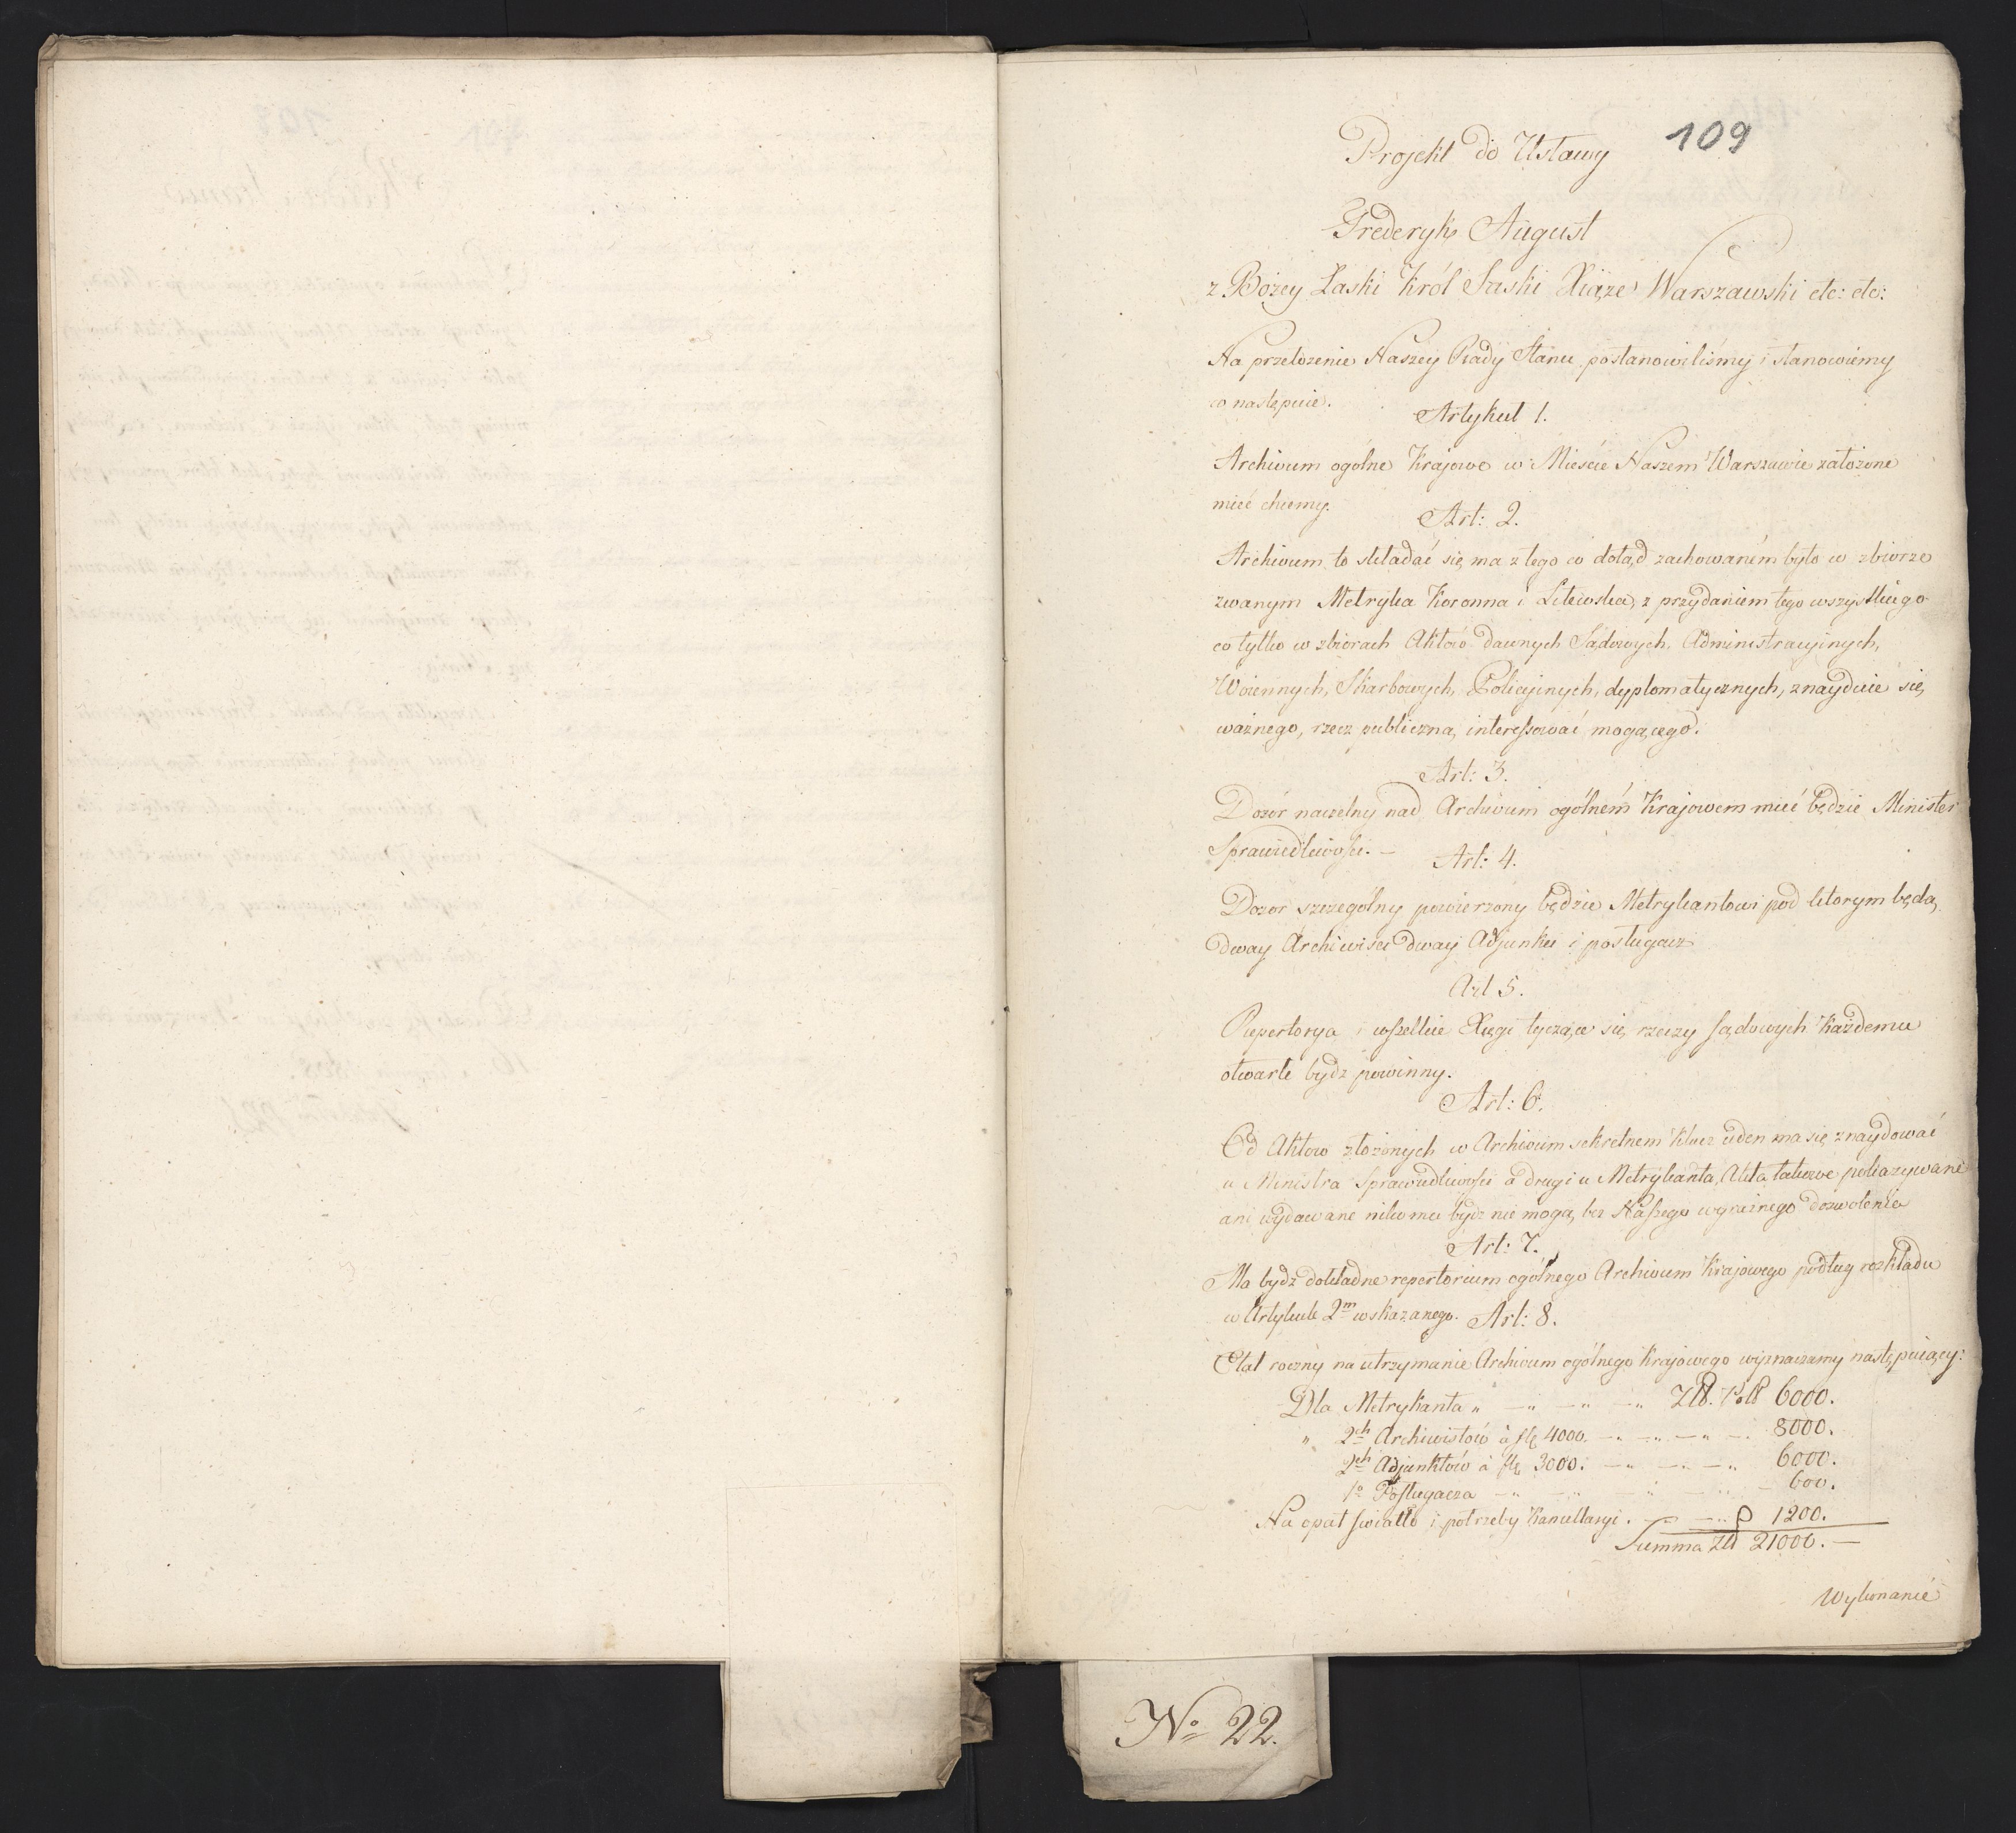 109
Projekt do Ustawy
Frederyk August
z Bożey Łaski Król Saski Xiąże Warszawski etc: etc:
Na przełożenie Naszey Rady Stanu postanowiliśmy i stanowiemy
co następuie.
Artykuł 1.
Archivum ogólne Krajowe w Mieście Naszem Warszawie założone
mieć chcemy.
Art: 2.
Archivum to składać się ma z tego co dotąd zachowaném było w zbiorze
zwanym Metryka Koronna i Litewska, z przydaniem tego wszystkiego
co tylko w zbiorach Aktów dawnych Sądowych, Administracyinych,
Woiennych, Skarbowych, Policyinych, dyplomatycznych, znayduie się
ważnego, rzecz publiczną interessować mogącego.
Art: 3.
Dozór naczelny nad Archivum ogólném Krajowem mieć będzie Minister
Sprawiedliwości. –
Art: 4.
Dozor szczególny powierzony będzie Metrykantowi pod ktorym będą
dway Archiwiści dway Adjunkci i posługacz
Art 5.
Repertorya i wszelkie Xięgi tyczące się rzeczy sądowych każdemu
otwarte bydz powinny.
Art: 6.
Od Aktow złożonych w Archivum sekretnem klucz ieden ma się znaydować
u Ministra Sprawiedliwości a drugi u Metrykanta, Akta takowe pokazywane
ani wydawane nikomu bydz nie mogą, bez Naszego wyraźnego dozwolenia
Art: 7.
Ma bydz dokładne repertorium ogólnego Archivum Krajowego podług rozkładu
w Artykule 2m wskazanego.
Art: 8.
Etat roczny na utrzymanie Archivum ogólnego Krajowego wyznaczamy następuiący:
Dla Metrykanta „ — „ — „ — „ Złł. Pol. 6000.
„ 2ch Archiwistów à fl. 4000. — „ — „ — „ — 8000.
2ch Adjunktów à fl. 3000. — „ — „ — „ 6000.
1o Posługacza — „ — „ — „ — „ — 600.
Na opał światło i potrzeby Kancellaryi. — — „ 1200.
Summa Zł 21000. —
Wykonanie
No 22.